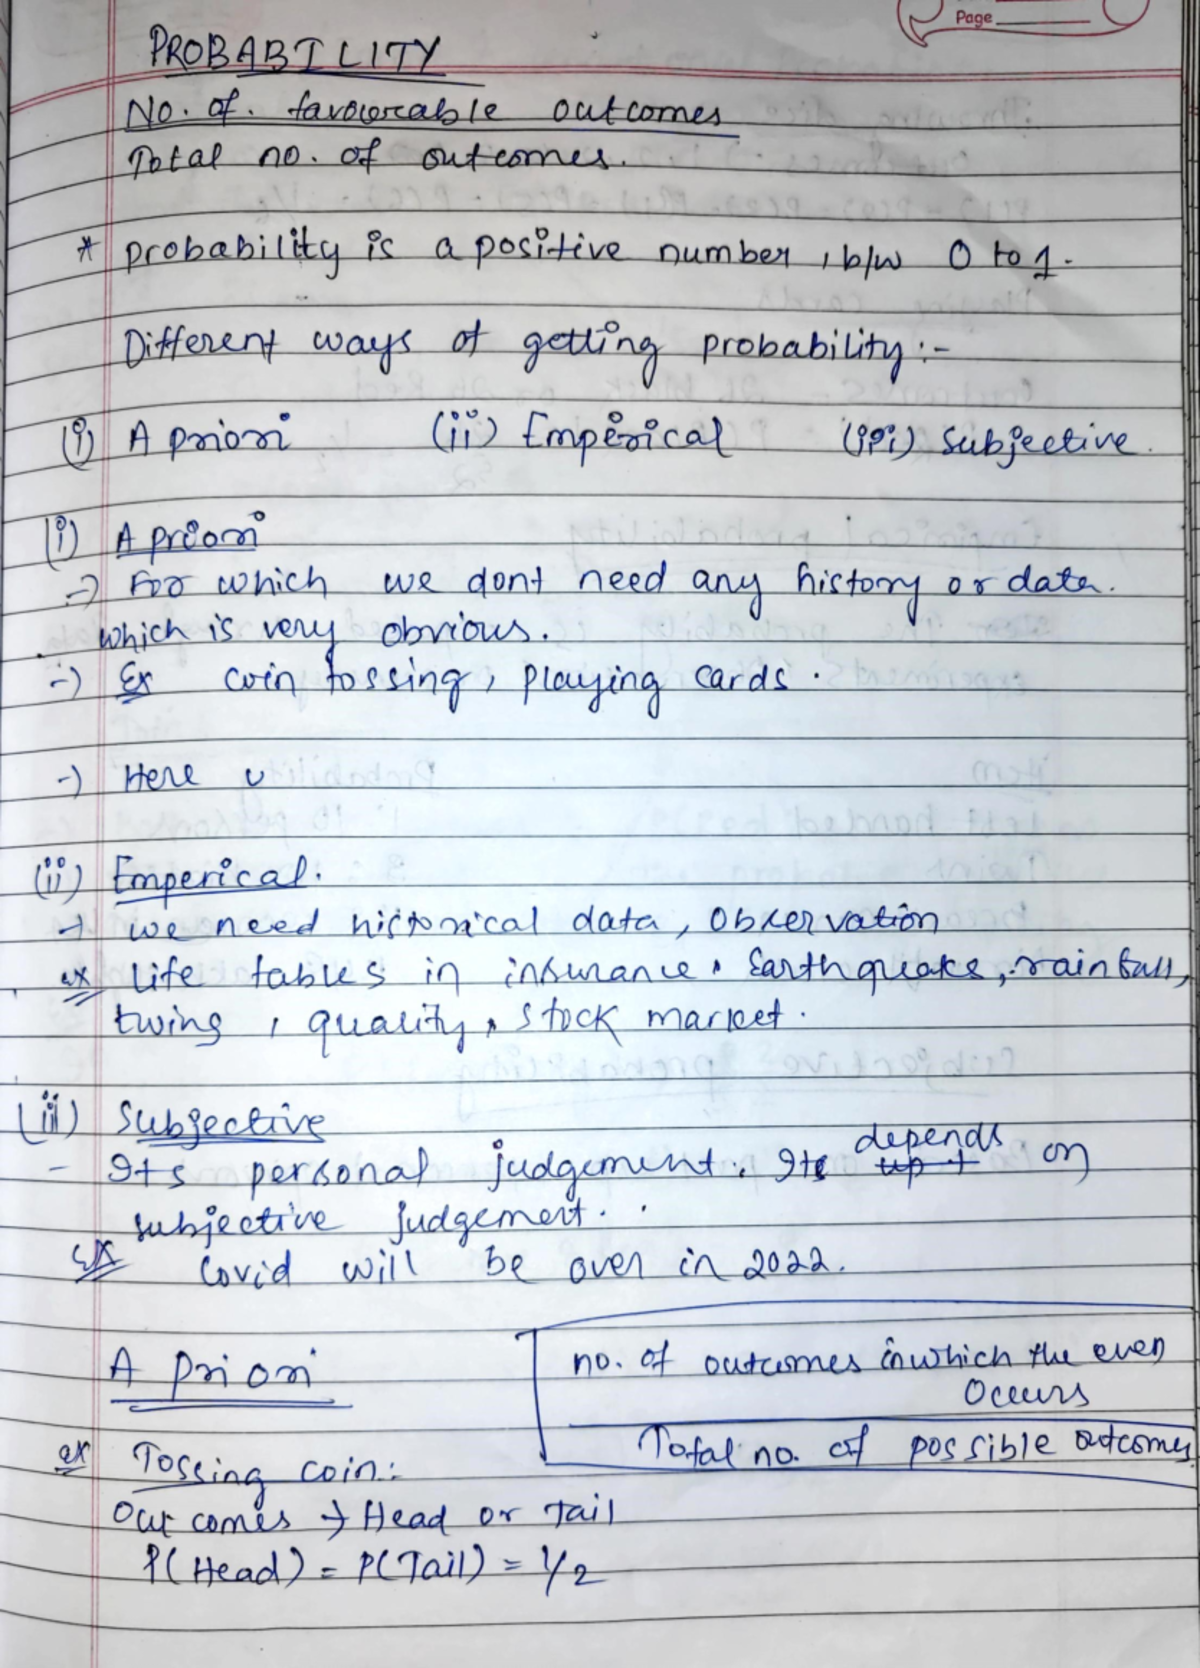 Page
PROBABILITY
No. of. favourable outcomes
Total no. of outcomes.
* probability is a positive number, b/w 0 to 1.
Different ways of getting probability :-
(i) A priori (ii) Emperical (iii) Subjective.
(i) A priori
-) For which we dont need any history or data.
which is very obvious.
-) Ex coin tossing, playing cards.
-) Here u
(ii) Emperical.
→ we need historical data, Observation
ex life tables in insurance, Earthquake, rainfall,
twing, quality, stock market.
(iii) Subjective
- Its personal judgement. Its depends on
subjective judgement.
Ex Covid will be over in 2022.
A priori
no. of outcomes in which the even
Occurs
Total no. of possible outcomes
ex Tossing coin:
Out comes → Head or Tail
P(Head) = P(Tail) = 1/2